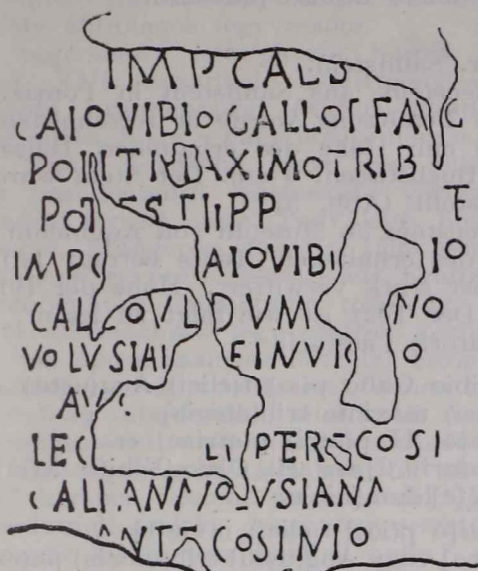 IMP CALS
CAIO VIBIO GALLO F FA C
PONTI AXIMO TRIB
POT EST II P P
IMP C AIO VIBI IO
CAL O VL DVM NIO
VOLVSIAI F INVIC O
AV
LEC LI PER COSI
CALLANMO VSIANA
ANT OSIMIO